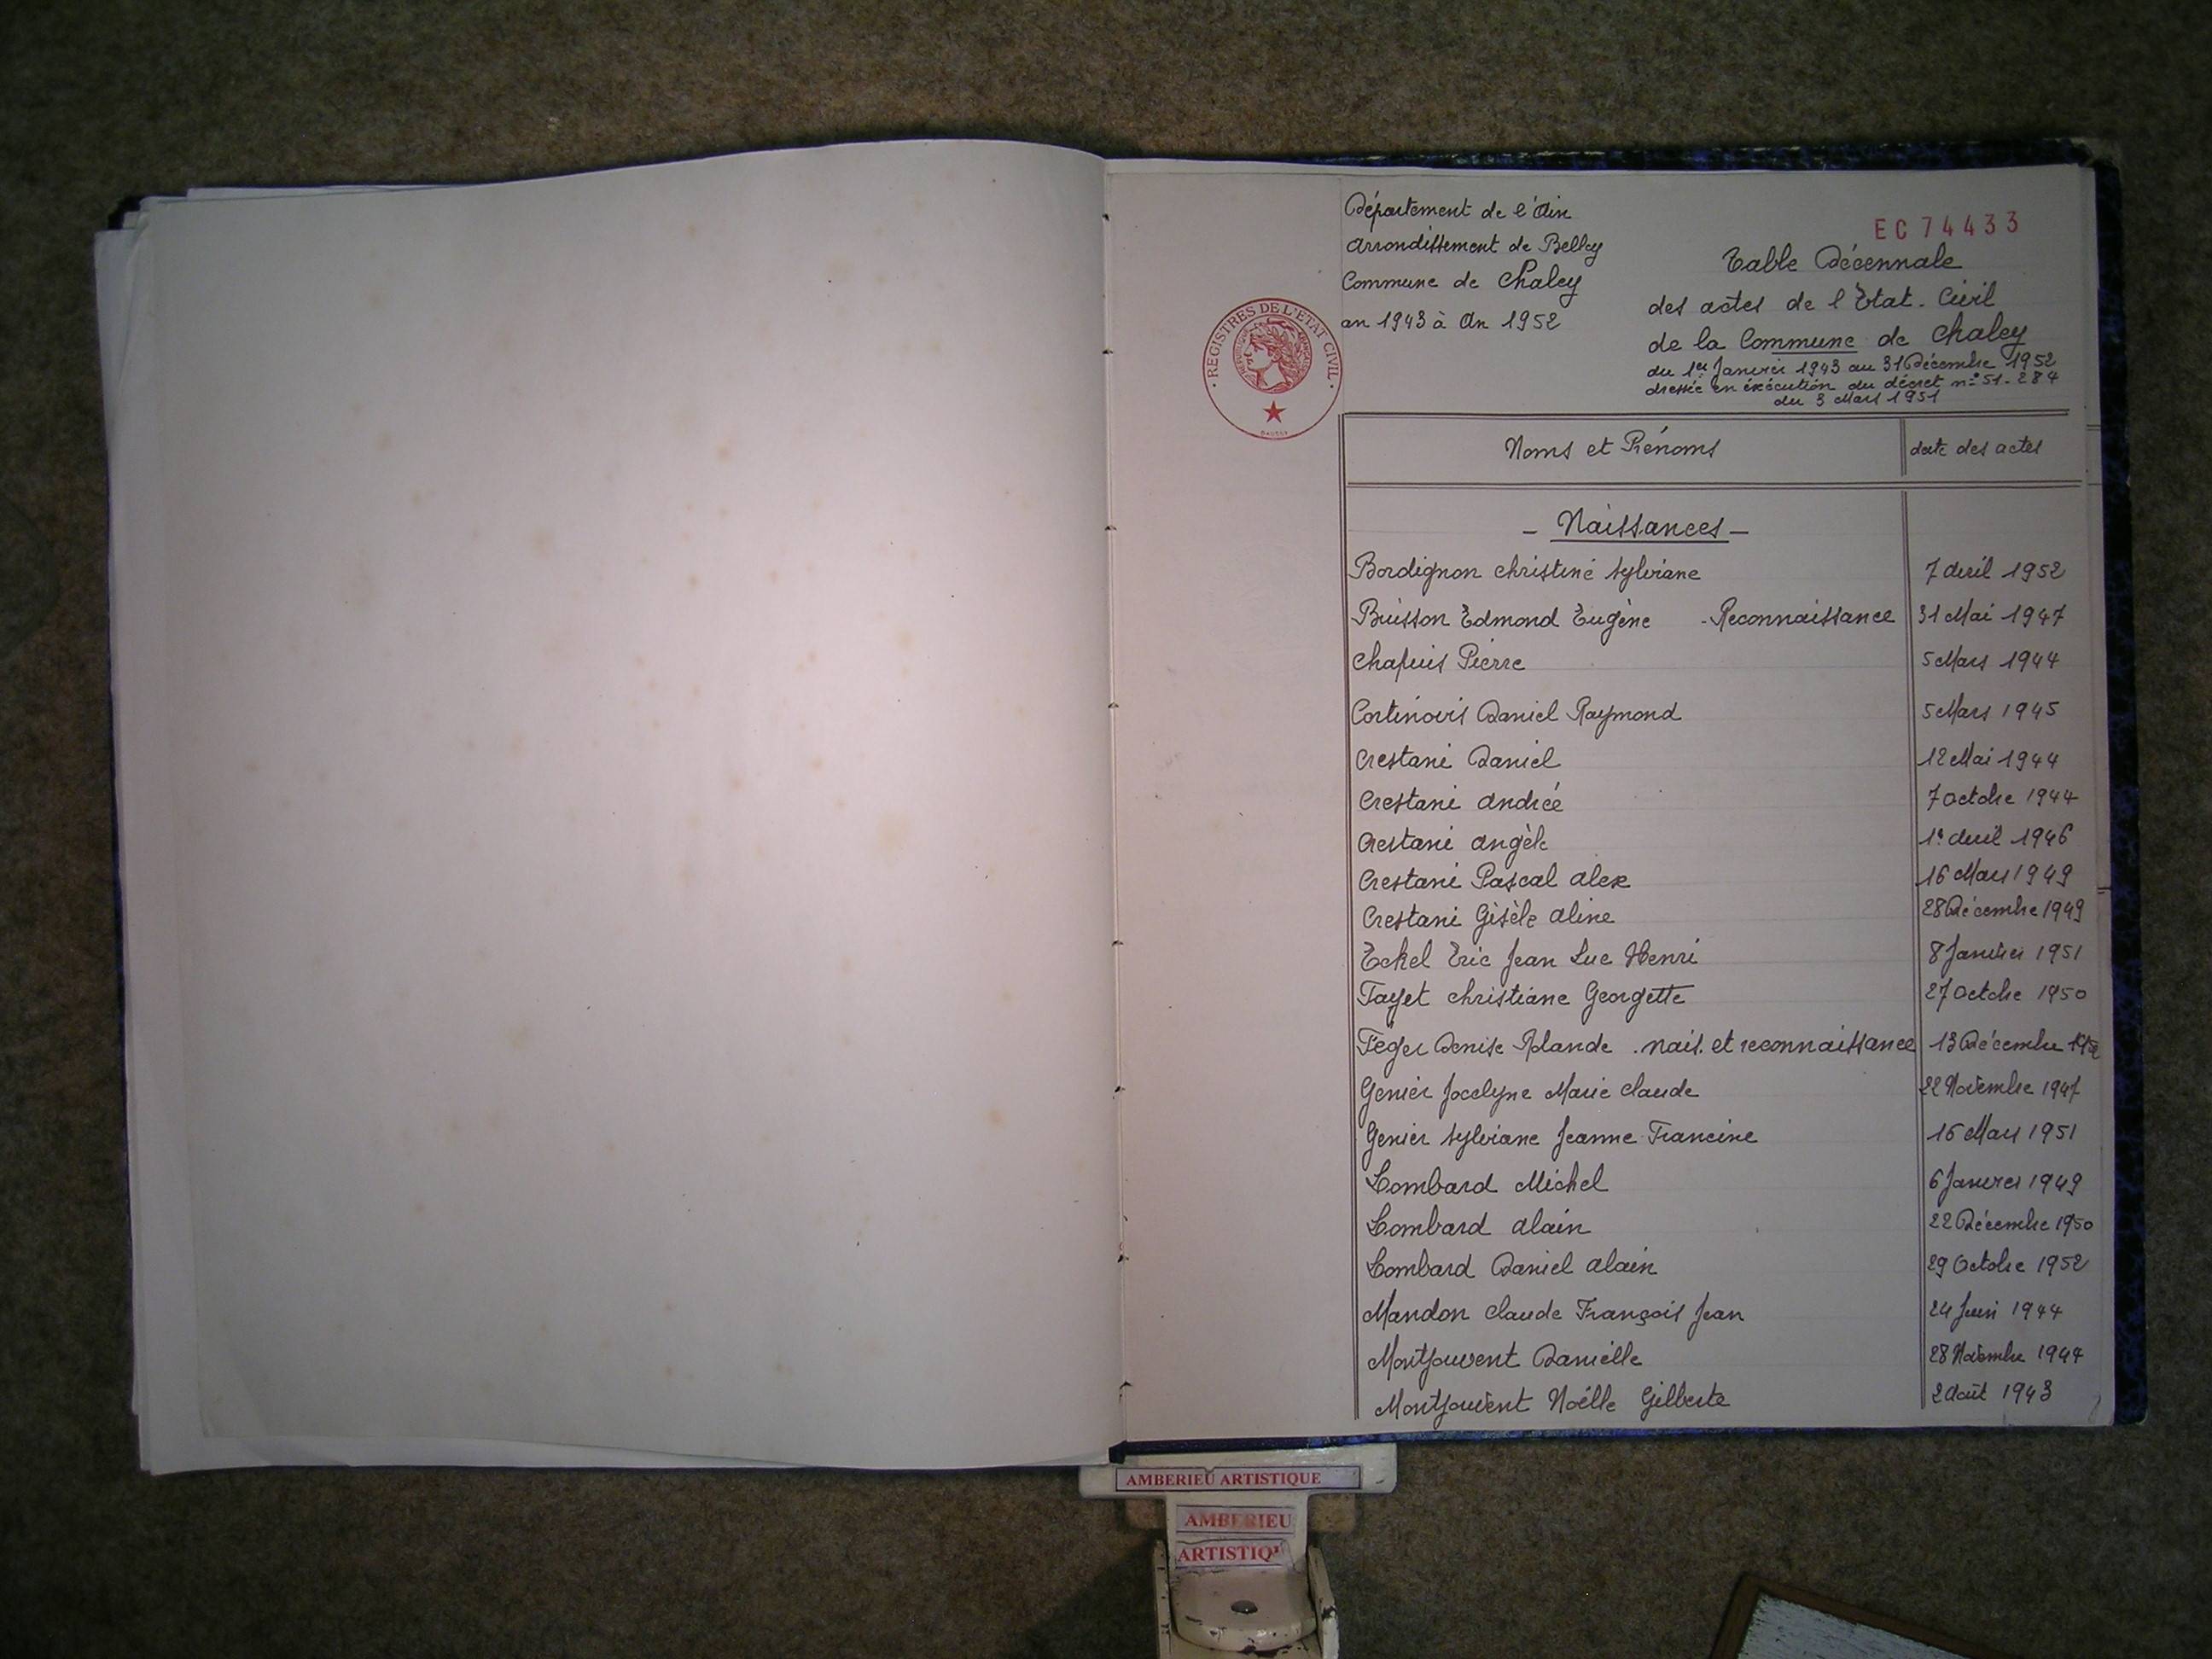 Département de l'Ain
Arrondissement de Belley
Commune de Chaley
an 1943 à An 1952
EC 74433
Table Décennale
des actes de l'Etat-Civil
de la Commune de Chaley
du 1er Janvier 1943 au 31 Décembre 1952
dressée en éxécution du décret n° 51-284
du 3 Mars 1951
REGISTRES DE L'ETAT CIVIL
Noms et Prénoms date des actes
- Naissances -
Bordignon Christine Sylviane 7 Avril 1952
Buisson Edmond Eugène - Reconnaissance 31 Mai 1947
Chapuis Pierre 5 Mars 1944
Cortinovis Daniel Raymond 5 Mars 1945
Crestani Daniel 12 Mai 1944
Crestani Andrée 7 Octobre 1944
Crestani Angèle 1e Avril 1946
Crestani Pascal Alex 16 Mars 1949
Crestani Gisèle Aline 28 Décembre 1949
Eckel Eric Jean Luc Henri 8 Janvier 1951
Fayet Christiane Georgette 27 Octobre 1950
Feger Denise Rolande . nais. et reconnaissance 13 Décembre
Genier Jocelyne Marie Claude 22 Novembre 1947
Genier Sylviane Jeanne Francine 16 Mars 1951
Lombard Michel 6 Janvier 1949
Lombard Alain 22 Décembre 1950
Lombard Daniel Alain 29 Octobre 1952
Mandon Claude François Jean 24 Juin 1944
Montfouvent Danielle 28 Novembre
Montfouvent Noëlle Gilberte 2 Août 1943
AMBERIEU ARTISTIQUE
AMBERIEU
ARTISTIQ